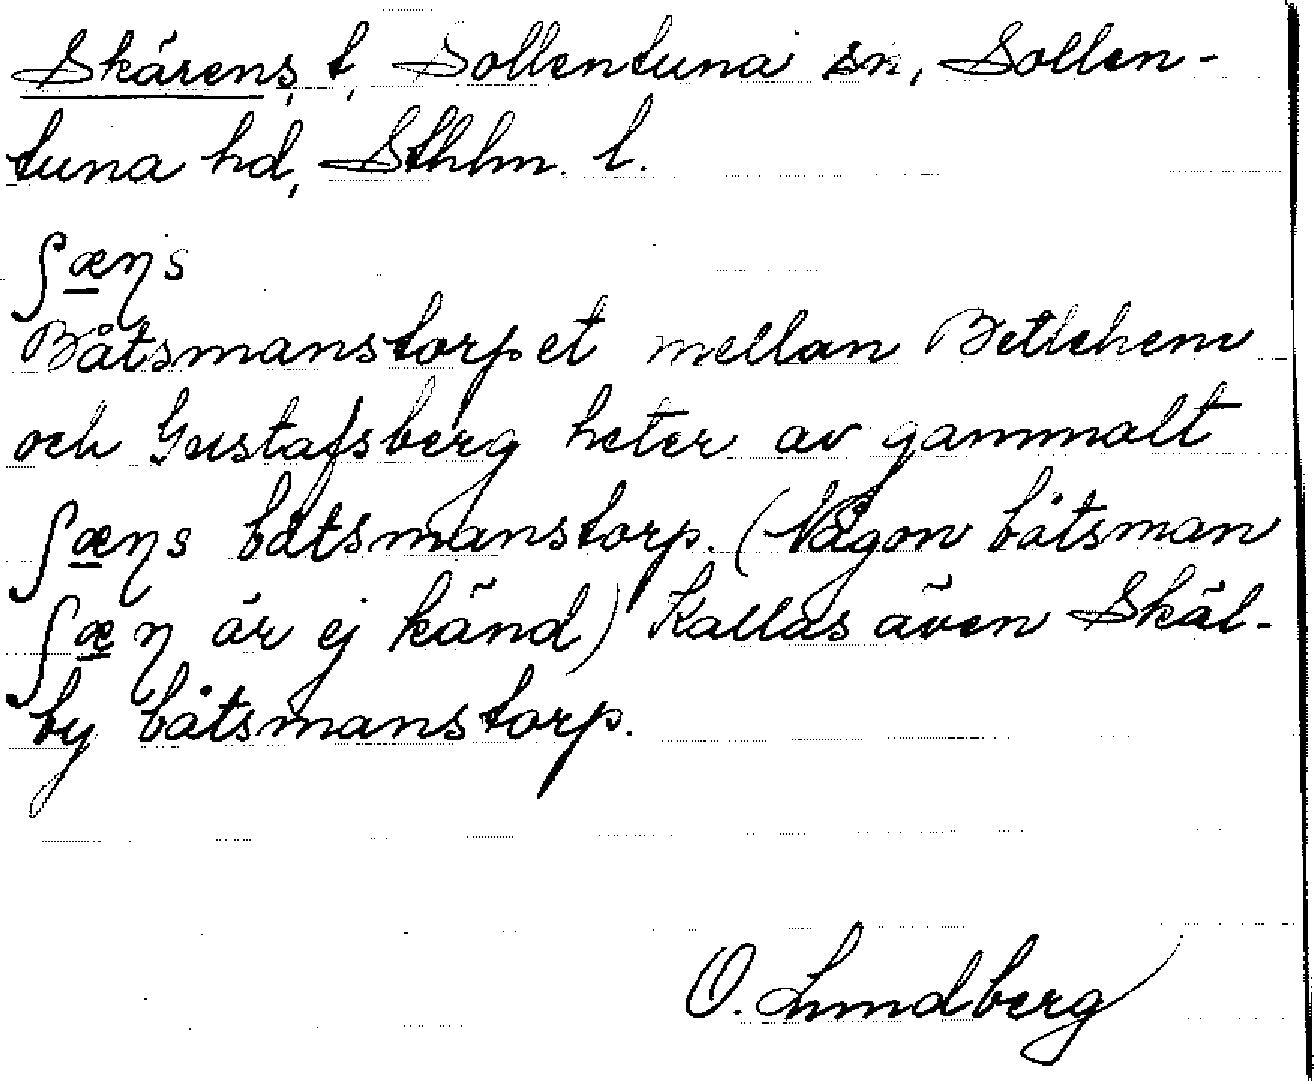 Skärens, t, Sollentuna sn, Sollen-
tuna hd, Sthlm. l.
ʃæɳs
Båtsmanstorpet mellan Betlehem
och Gustafsberg heter av gammalt
ʃæɳs båtsmanstorp. (Någon båtsman
ʃæɳ är ej känd) Kallas även Skäl-
by båtsmanstorp.
O. Lundberg